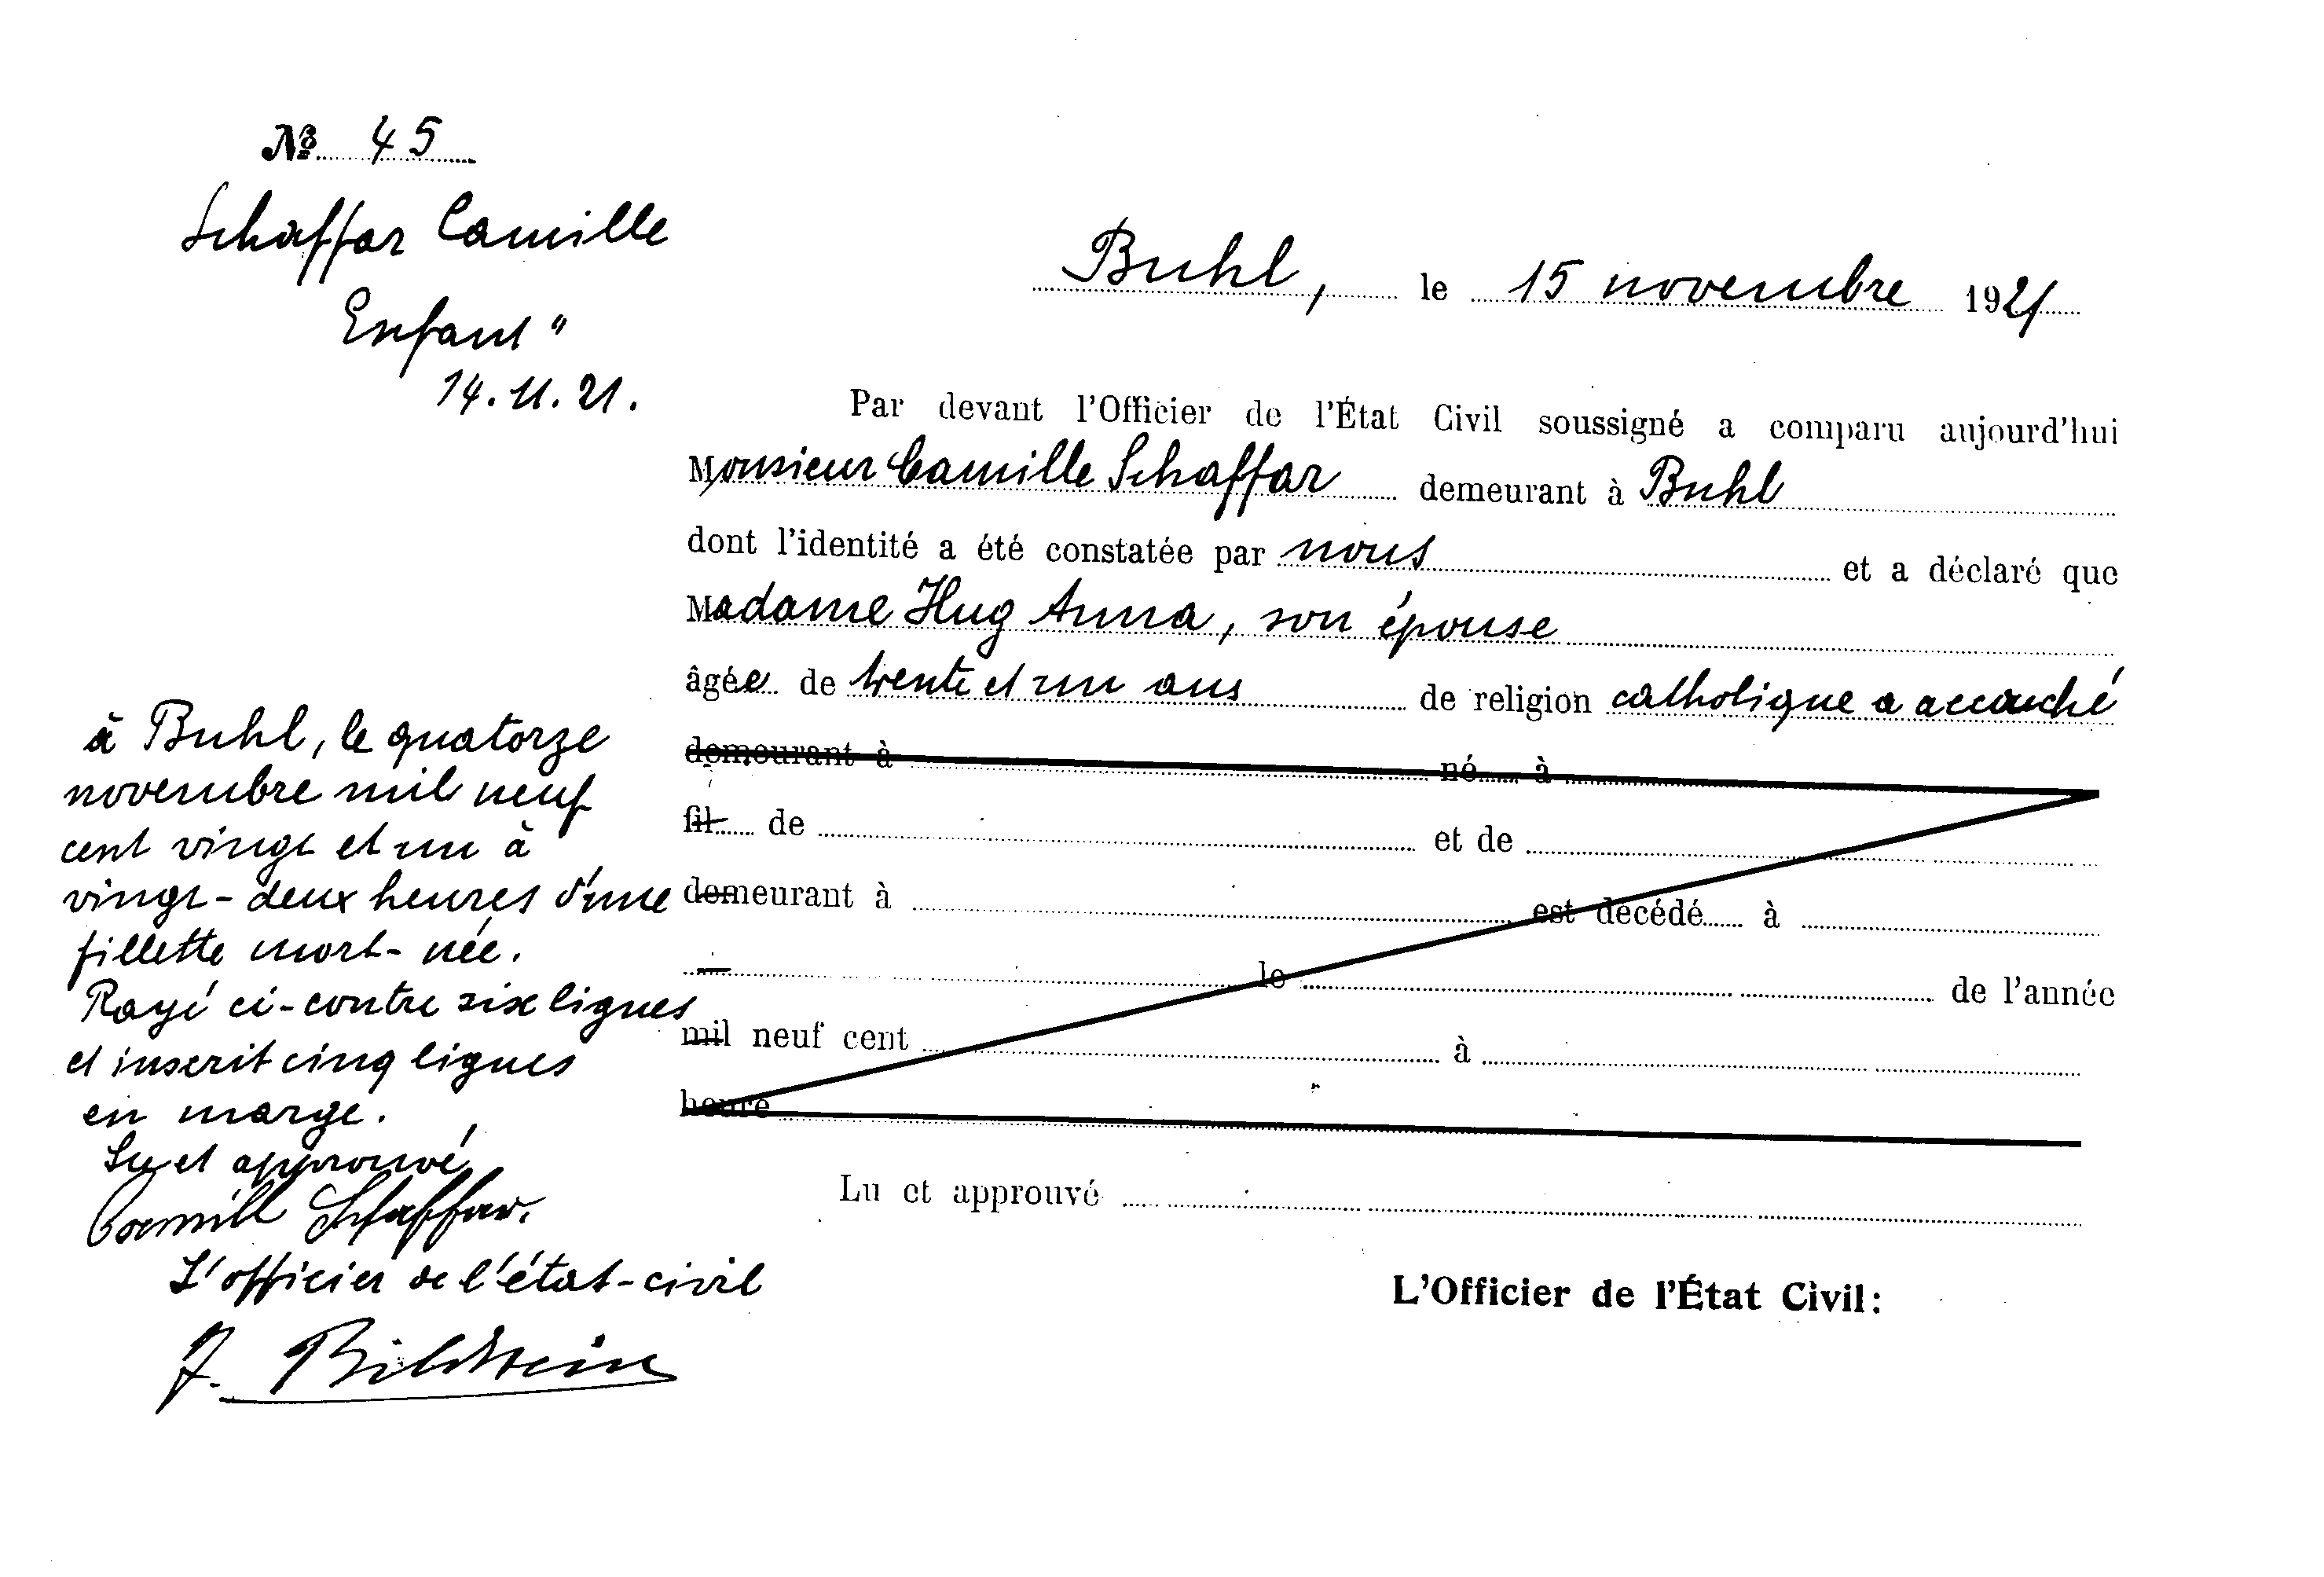 № 45
Schaffar Camille
Enfant "
14.11.21.
Buhl, le 15 novembre 1921
Par devant l'Officier de l'État Civil soussigné a comparu aujourd'hui
Monsieur Camille Schaffar demeurant à Buhl
dont l'identité a été constatée par nous et a déclaré que
Madame Hug Anna, son épouse
âgée de trente et un ans de religion catholique a accouché
demeurant à né à
fil de et de
demeurant à est décédé à
le de l'année
mil neuf cent à
heure
à Buhl, le quatorze
novembre mil neuf
cent vingt et un à
vingt-deux heures d'une
fillette mort-née.
Rayé ci-contre six lignes
et inscrit cinq lignes
en marge.
Lu et approuvé
Camill Schaffar.
L'officier de l'état-civil
J. Bildstein
Lu et approuvé
L'Officier de l'État Civil: